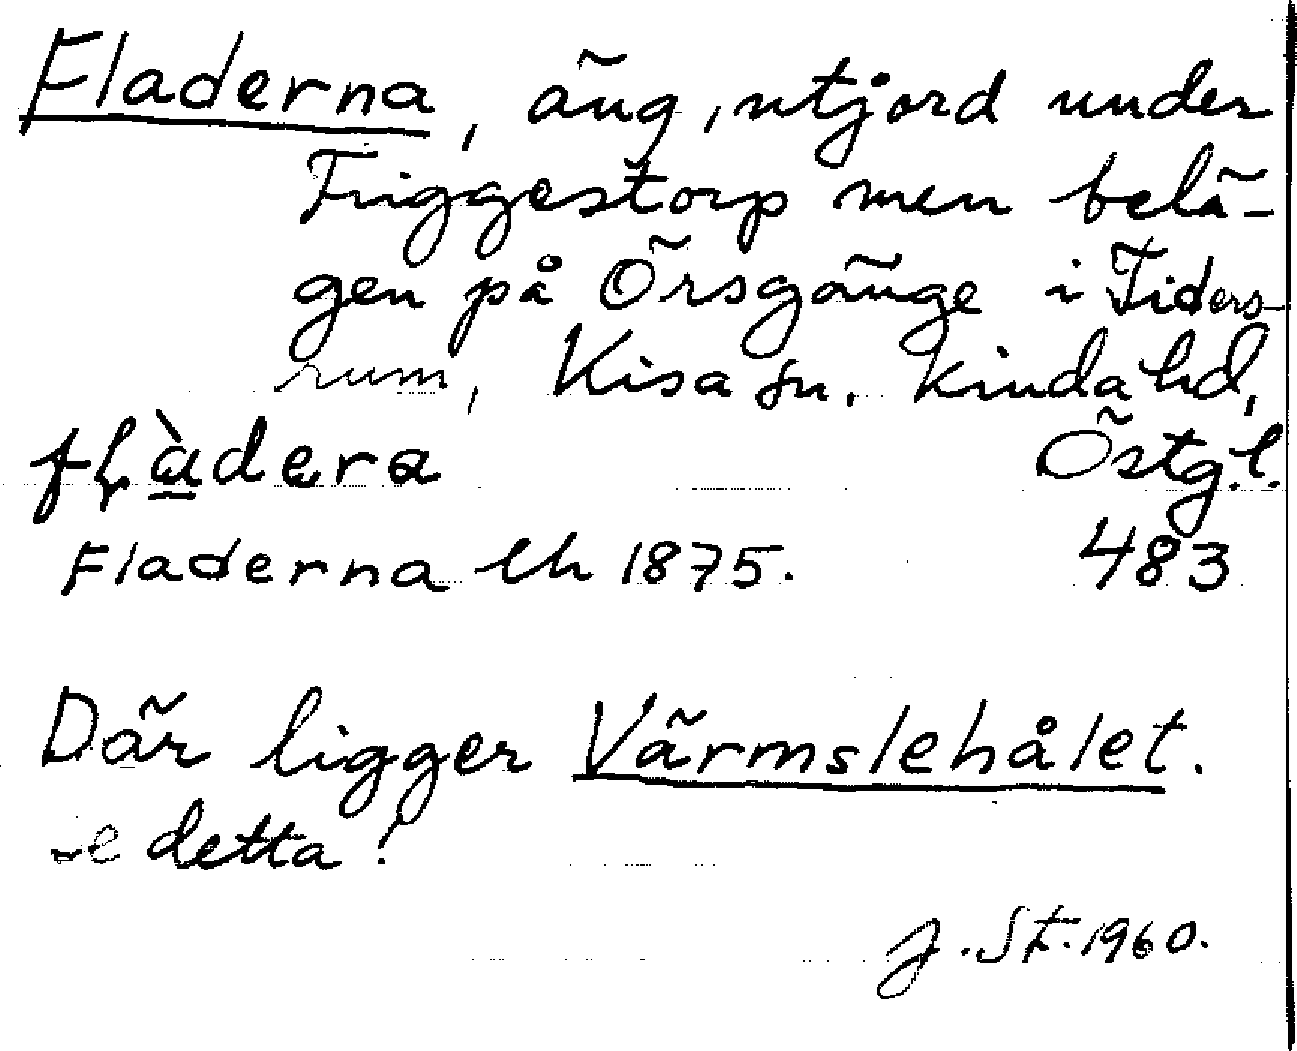 Fladerna, äng, utjord under
Friggestorp men belä-
gen på Örsgänge i Tiders-
rum, Kisa sn. Kinda hd,
Östg.l.
fḷàdera
Fladerna lh 1875. 483
Där ligger Värmslehålet.
se detta!
J. St. 1960.